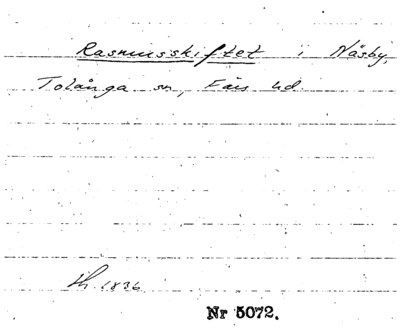 Rasmusskiftet i Näsby,
Tolånga sn, Färs hd
sh. 1836
Nr 5072.